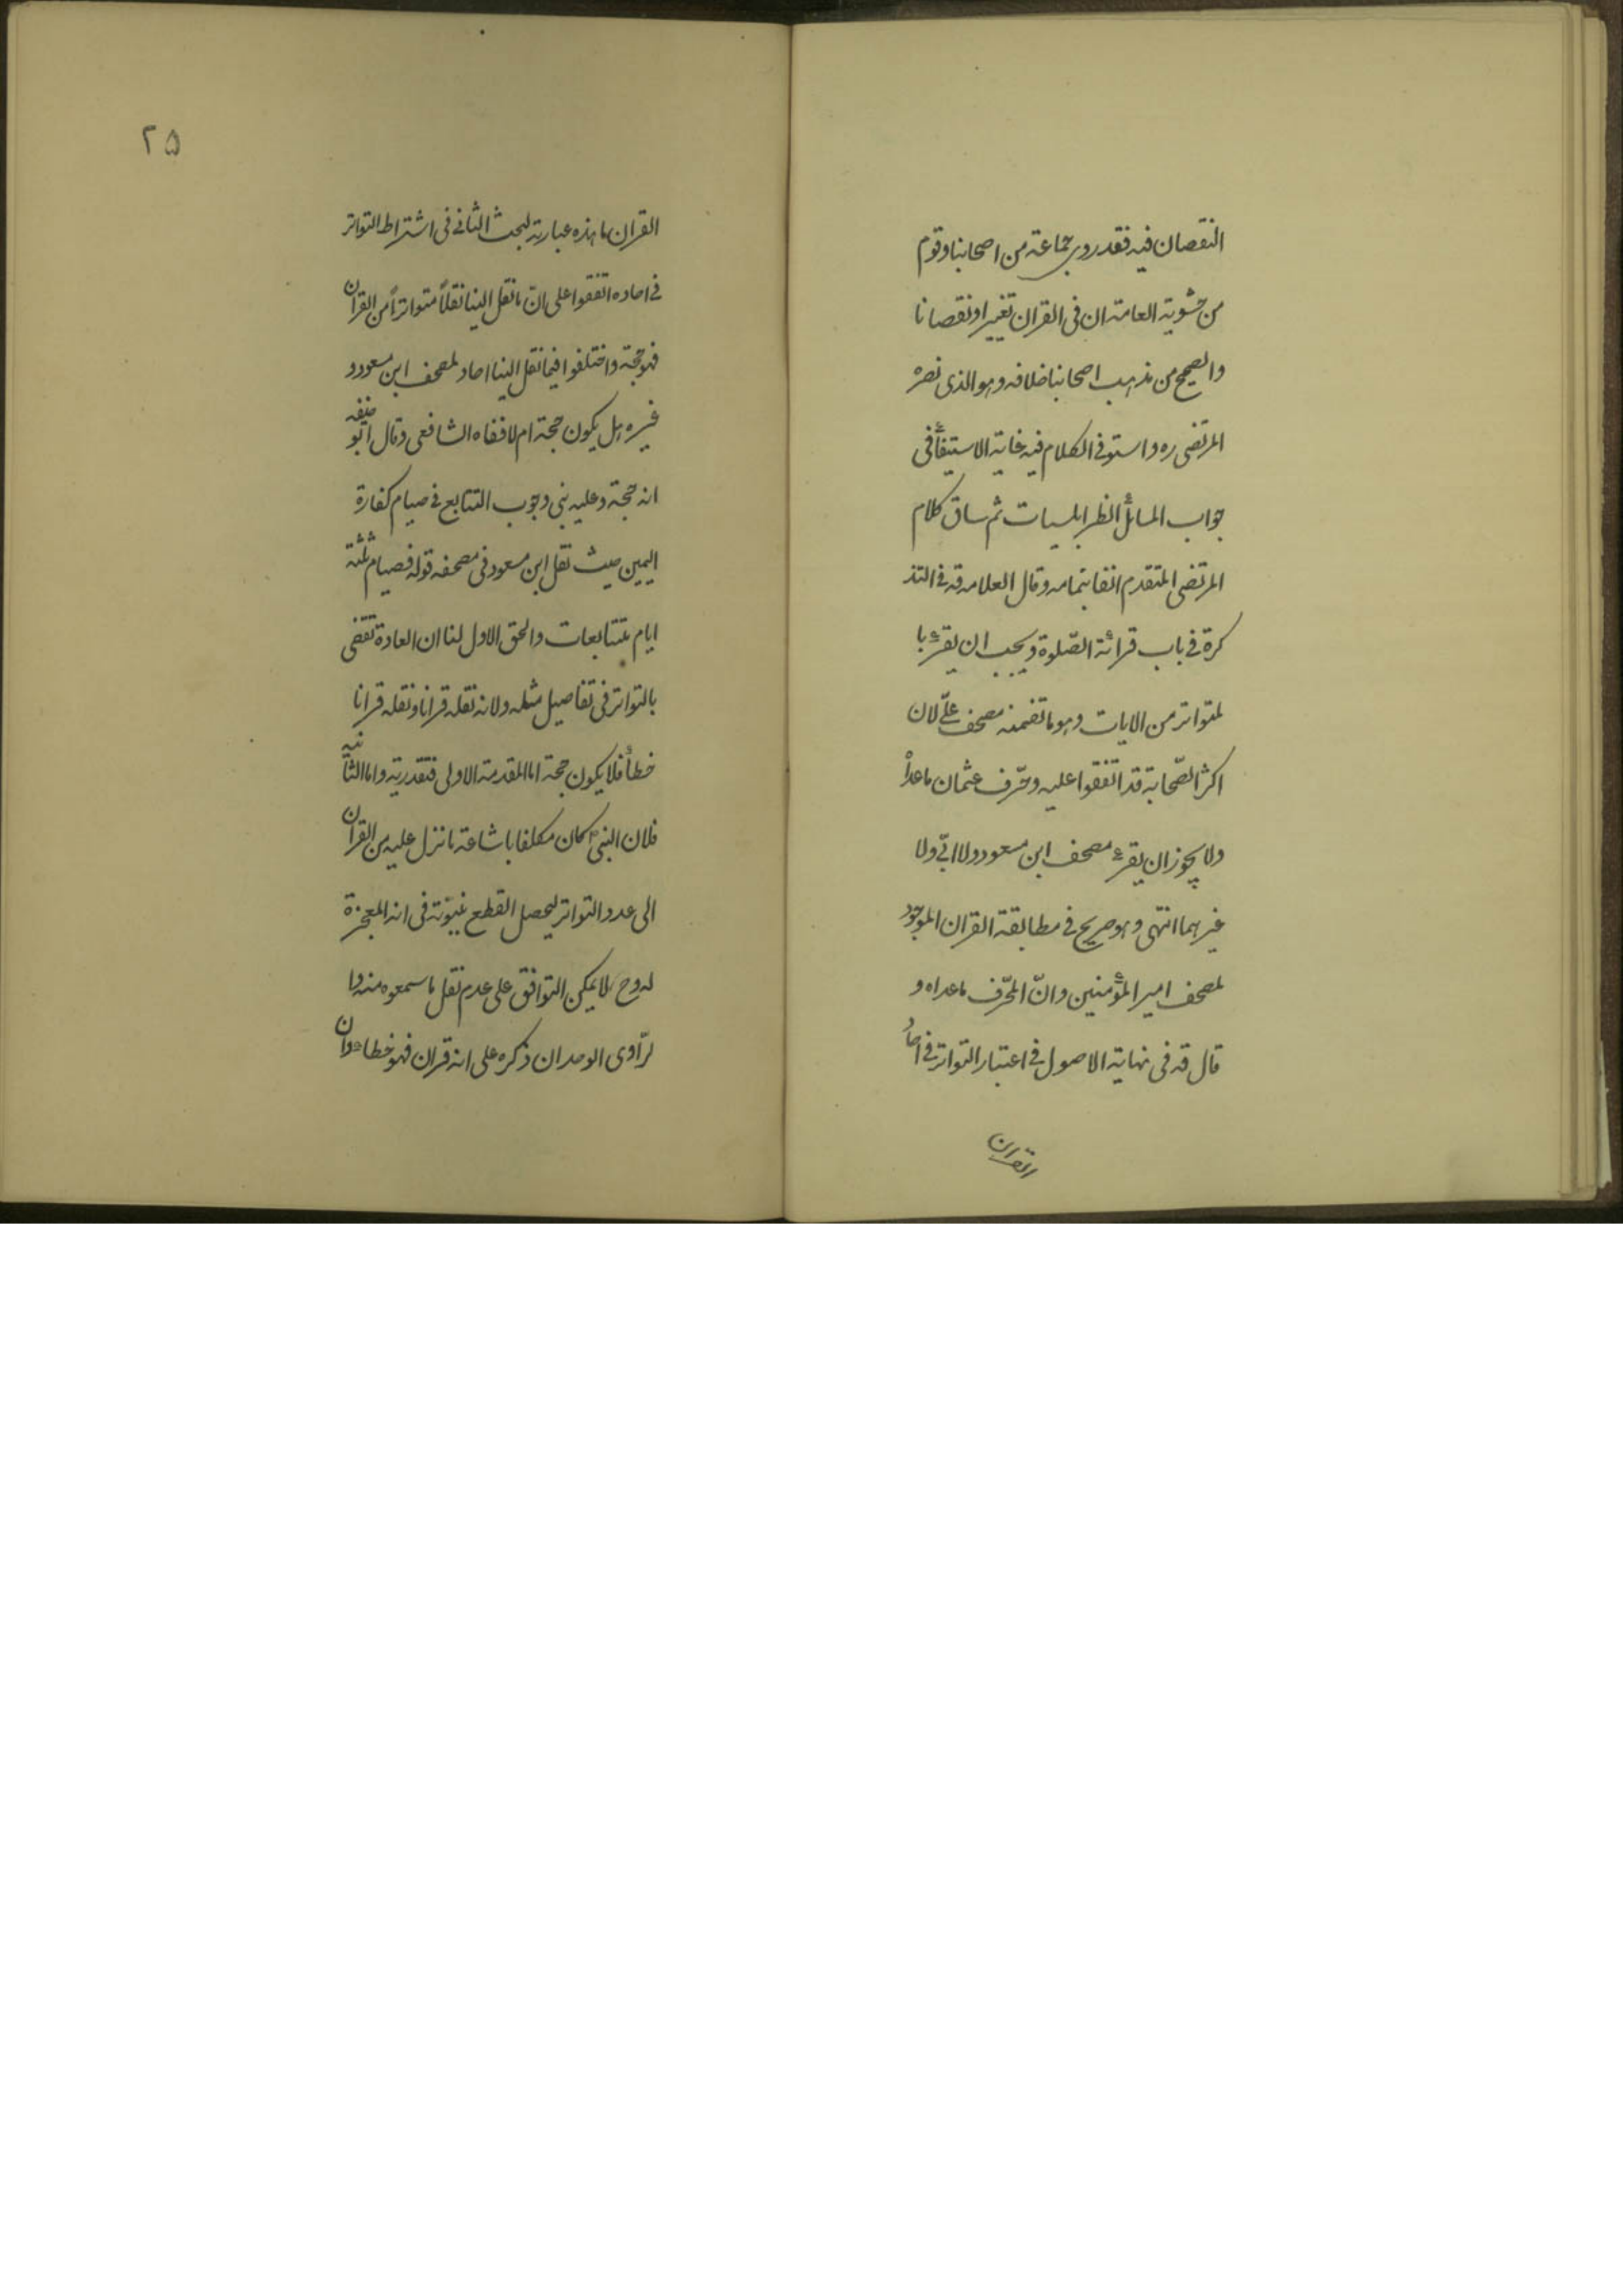 النقصان فيه فقد روى جماعة من اصحابنا وقوم
من حشوية العامة ان فى القران تغييرا ونقصانا
والصحيح من مذهب اصحابنا خلافه وهو الذى نصره
المرتضى ره واستوفى الكلام فيه غاية الاستيفاء فى
جواب المسائل الطرابلسيات ثم ساق كلام
المرتضى المتقدم انفا بتمامه وقال العلامة قه فى التذ
كرة فى باب قرائة الصّلوة ويجب ان يقرء با
لمتواتر من الايات وهو ما تضمنه مصحف علىّ لان
اكثر الصّحابة قد اتفقوا عليه وحرّف عثمان ما عداه
ولا يجوز ان يقرء مصحف ابن مسعود ولا ابىّ ولا
غيرهما انتهى وهو صريح فى مطابقة القران الموجود
لمصحف امير المؤمنين وانّ المحرّف ما عداه و
قال قه فى نهاية الاصول فى اعتبار التواتر فى احاد
القران
٢٥
القران ما هذه عبارته البحث الثانى فى اشتراط التواتر
فى احاده اتفقوا على انّ ما نقل الينا نقلاً متواتراً من القران
فهو حجة واختلفوا فيما نقل الينا احاد لمصحف ابن مسعود و
غيره هل يكون حجة ام لا فنفاه الشافعى وقال ابو حنيفه
انه حجة وعليه بنى وجوب التتابع فى صيام كفارة
اليمين حيث نقل ابن مسعود فى مصحفه قوله فصيام ثلثة
ايام متتابعات والحق الاول لنا ان العادة تقتضى
بالتواتر فى تفاصيل مثله ولانه نقله قرانا ونقله قرانا
خطأ فلا يكون حجة اما المقدمة الاولى فتقديرية واما الثانيه
فلان النبى كان مكلفا باشاعة ما نزل عليه من القران
الى عدد التواتر ليحصل القطع بنبوّته فى انه المعجزة
له وح لا يمكن التوافق على عدم نقل ما سمعوه منه وا
لرّاوى الوحد ان ذكره على انه قران فهو خطاء وان